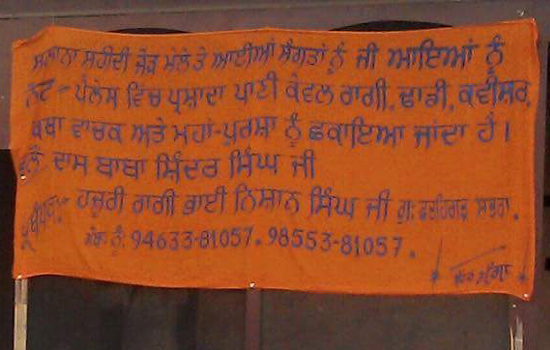 ਸਲਾਨਾ ਸਹੀਦੀ ਜੋੜ ਮੇਲੇ ਤੇ ਆਈਆਂ ਸੰਗਤਾਂ ਨੂੰ ਜੀ ਆਇਆਂ ਨੂੰ
ਨੋਟ - ਪੰਲੇਸ ਵਿੱਚ ਪ੍ਰਸ਼ਾਦਾ ਪਾਣੀ ਕੇਵਲ ਰਾਗੀ, ਢਾਡੀ, ਕਵੀਸ਼ਰ,
ਕਥਾ ਵਾਚਕ ਅਤੇ ਮਹਾਂ-ਪੁਰਸ਼ਾ ਨੂੰ ਛਕਾਇਆ ਜਾਂਦਾ ਹੈ।
ਦਾਸ ਬਾਬਾ ਸ਼ਿੰਦਰ ਸਿੰਘ ਜੀ
ਪ੍ਰਬੰਧਕ:- ਹਜੂਰੀ ਰਾਗੀ ਭਾਈ ਨਿਸ਼ਾਨ ਸਿੰਘ ਜੀ ਗੁ: ਫਤਹਿਗੜ੍ਹ ਸਭਰਾ.
ਨੂੰ: 94633-81057. 98553-81057.